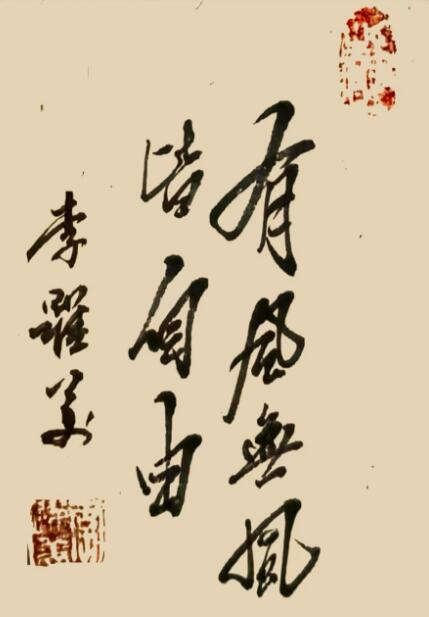 有風無風
皆自由
李羅美